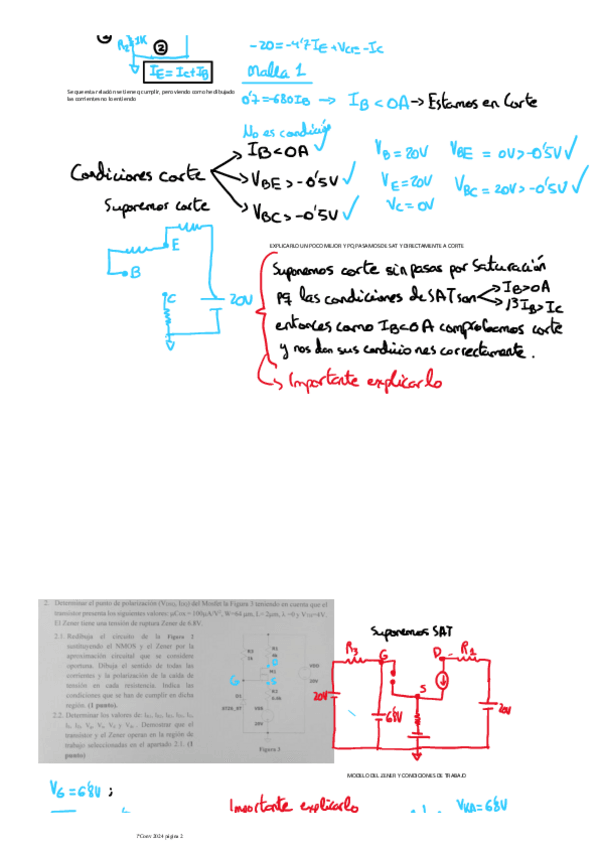 R2 1K
②
IE = IC + IB
-20 = -4'7 IE + VCE - IC
Malla 1
Se que esta relación se tiene q cumplir, pero viendo como he dibujado
las corrientes no lo entiendo
0'7 = -680 IB → IB < 0A → Estamos en Corte
Condiciones corte
No es condición
IB < 0A ✓
VBE > -0'5V ✓
VBC > -0'5V ✓
VB = 20V
VE = 20V
VC = 0V
VBE = 0V > -0'5V ✓
VBC = 20V > -0'5V ✓
Suponemos corte
E
B
C
20V
EXPLICARLO UN POCO MEJOR Y PQ PASAMOS DE SAT Y DIRECTAMENTE A CORTE
Suponemos corte sin pasar por Saturación
Pq las condiciones de SAT son
IB > 0A
βIB > IC
entonces como IB < 0A comprobamos corte
y nos dan sus condiciones correctamente.
Importante explicarlo
2. Determinar el punto de polarización (VDSQ, IDQ) del Mosfet la Figura 3 teniendo en cuenta que el
transistor presenta los siguientes valores: μCox = 100μA/V², W=64 μm, L= 2μm, λ =0 y VTH=4V.
El Zener tiene una tensión de ruptura Zener de 6.8V.
2.1. Redibuja el circuito de la Figura 3
sustituyendo el NMOS y el Zener por la
aproximación circuital que se considere
oportuna. Dibuja el sentido de todas las
corrientes y la polarización de la caída de
tensión en cada resistencia. Indica las
condiciones que se han de cumplir en dicha
región. (1 punto).
2.2. Determinar los valores de:
Demostrar que el
transistor y el Zener operan en la región de
trabajo seleccionadas en el apartado 2.1. (1
punto)
R3
R1
D
M1
G
S
R2
D1
VDD
20V
Figura 3
Suponemos SAT
R3
G
D
R1
S
20V
6'8V
20V
MODELO DEL ZENER Y CONDICIONES DE TRABAJO
VG = 6'8V ;
Importante explicarlo
VKA = 6'8V
FCnev 2024 página 2